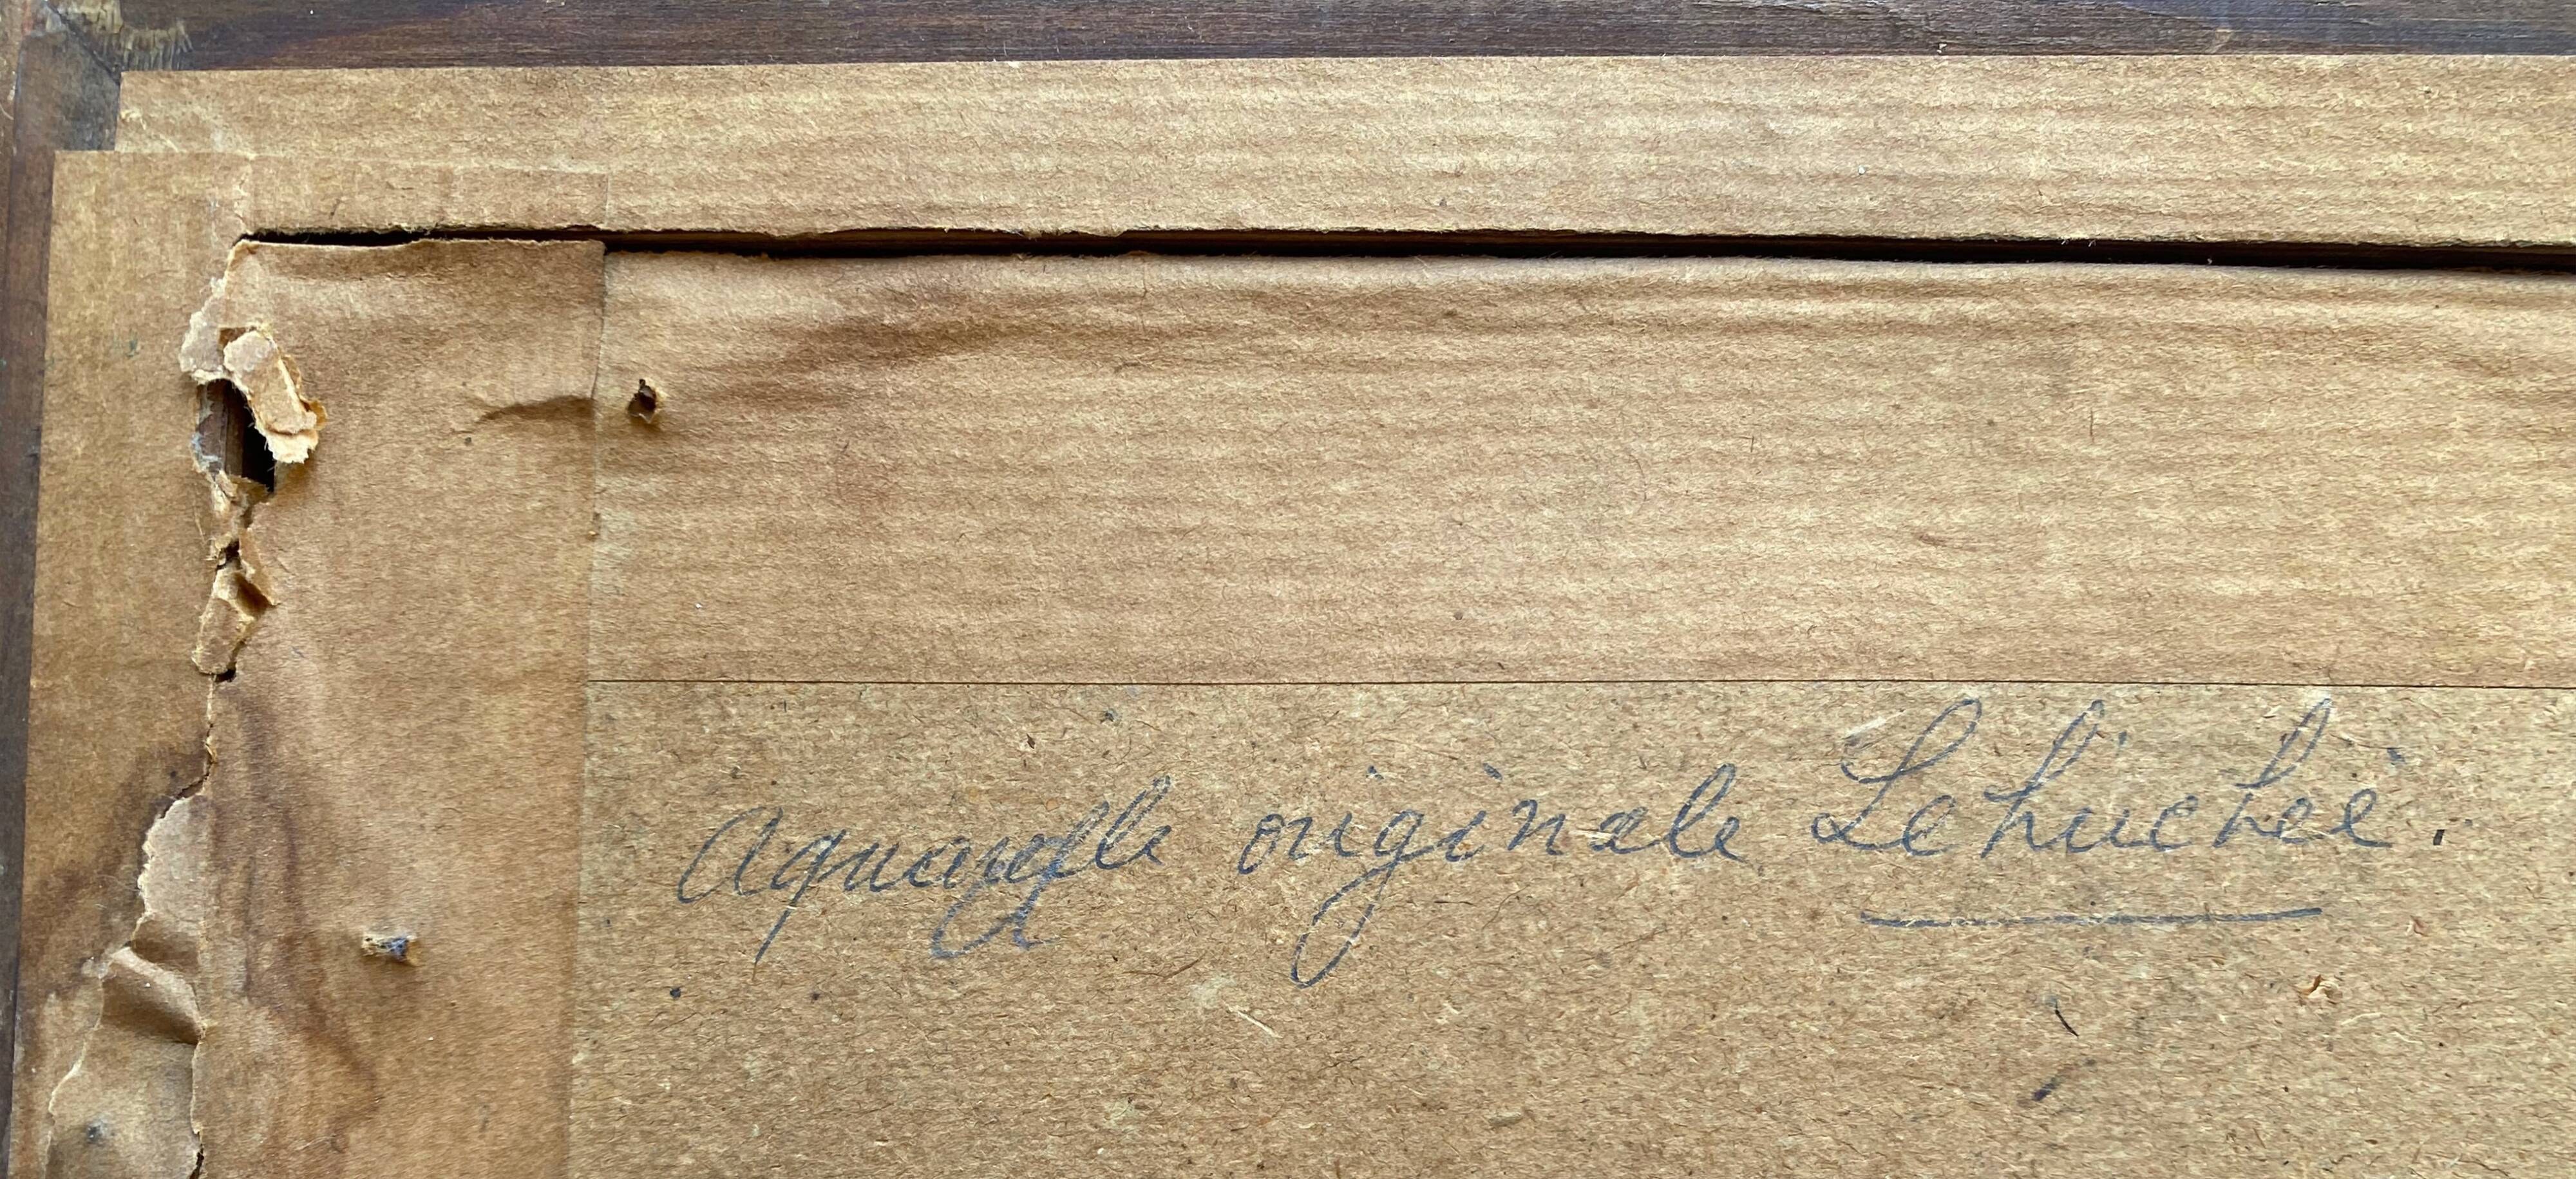 Aquarelle originale Lehuché.